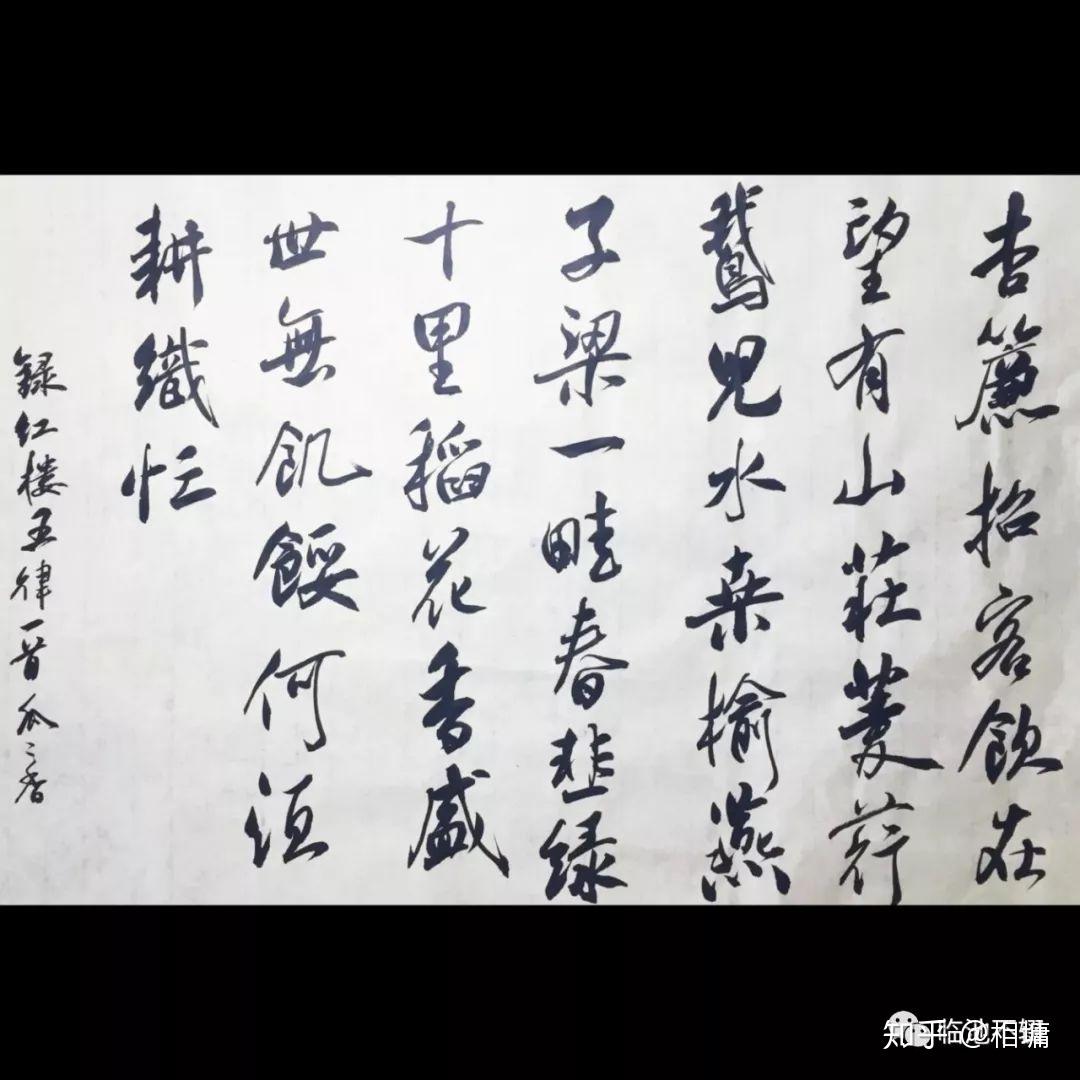 杏簾招客飲在
望有山莊菱荇
鵞兒水桑榆燕
子梁一畦春韭綠
十里稻花香盛
世無飢餒何須
耕織忙
録红楼五律一首瓜〻香
知乎 @相墉